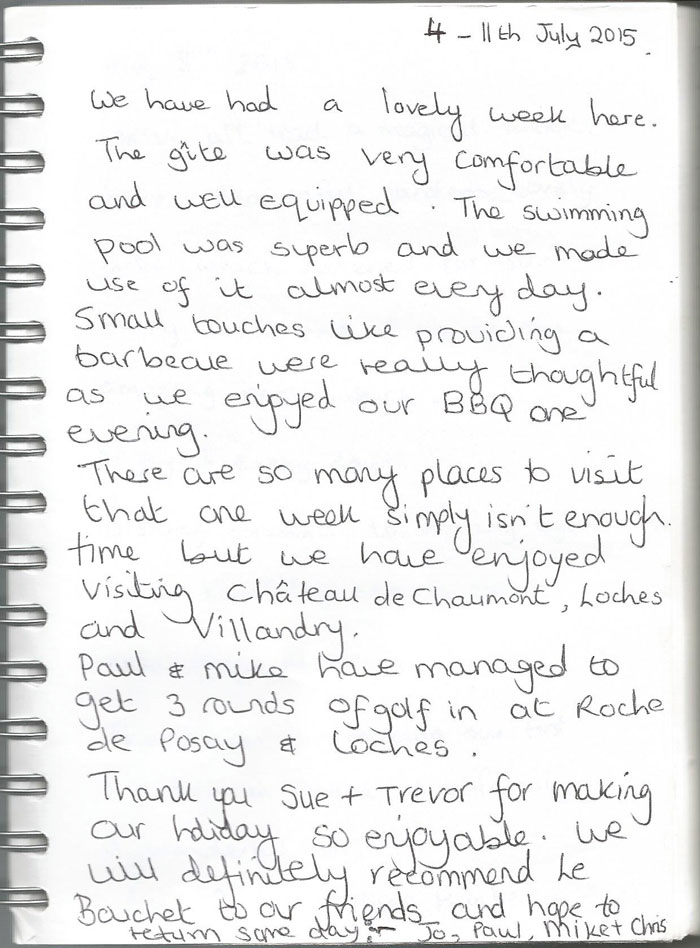 4 - 11th July 2015.
We have had a lovely week here.
The gîte was very comfortable
and well equipped. The swimming
pool was superb and we made
use of it almost every day.
Small touches like providing a
barbecue were really thoughtful
as we enjoyed our BBQ one
evening.
There are so many places to visit
that one week simply isn't enough.
time but we have enjoyed
visiting Château de Chaumont, Loches
and Villandry.
Paul & Mike have managed to
get 3 rounds of golf in at Roche
de Posay & Loches.
Thank you Sue + Trevor for making
our holiday so enjoyable. We
will definitely recommend Le
Bouchet to our friends and hope to
return some day! - Jo, Paul, Mike + Chris